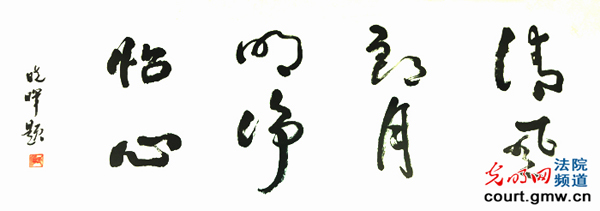 清风
朗月
明净
怡心
晓晖题
光明网
法院
频道
court.gmw.cn